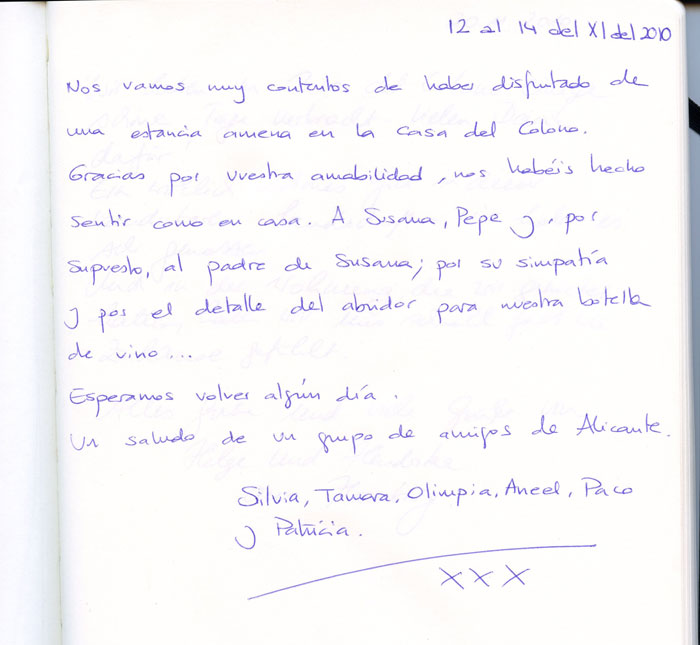 12 al 14 del XI del 2010
Nos vamos muy contentos de haber disfrutado de
una estancia amena en la casa del Colono.
Gracias por vuestra amabilidad, nos habéis hecho
sentir como en casa. A Susana, Pepe y, por
supuesto, al padre de Susana; por su simpatía
y por el detalle del abridor para nuestra botella
de vino...
Esperamos volver algún día.
Un saludo de un grupo de amigos de Alicante.
Silvia, Tamara, Olimpia, Aneel, Paco
y Patricia.
XXX